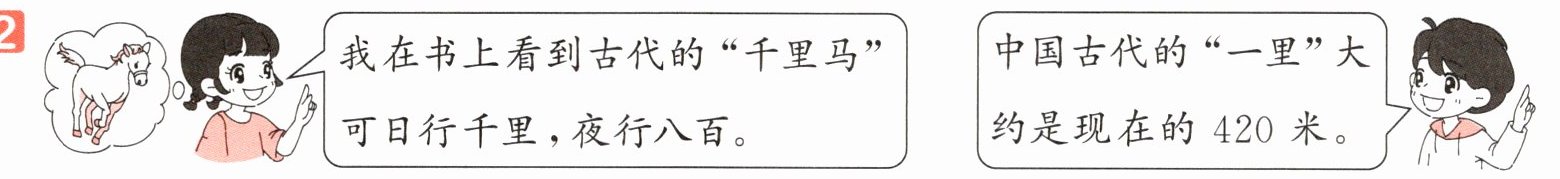 2
我在书上看到古代的“千里马”
可日行千里，夜行八百。
中国古代的“一里”大
约是现在的 420 米。